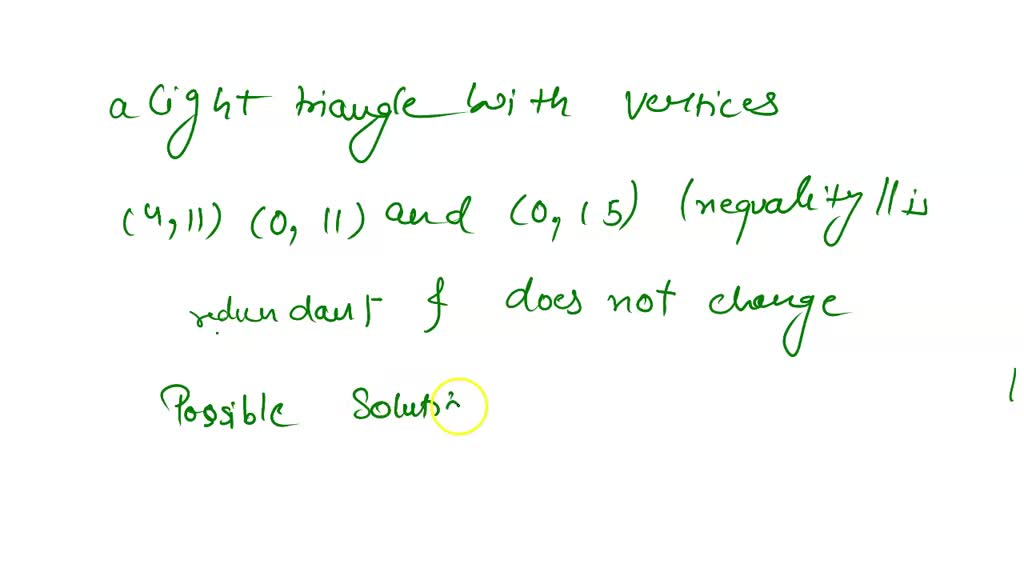 a right triangle with vertices
(4,11) (0, 11) and (0, 15) (nequality 11 is
redundant & does not change
Possible Solut